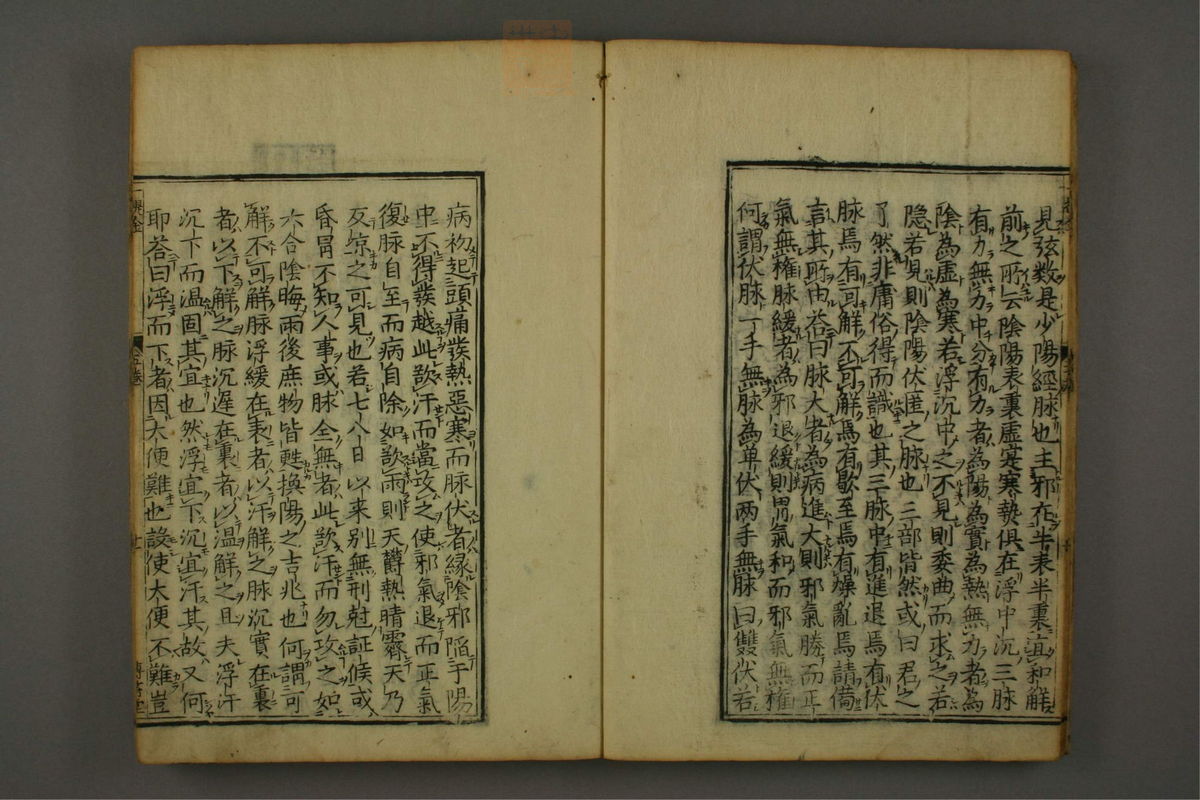 見弦数是少陽經脉也主邪在半表半裏宜和解
前之所云陰陽表裏虛寔寒𤍠俱在浮中沉三脉
有力無力中分有力者為陽為實為熱無力者為
陰為虛為寒若浮沉中之不見則委曲而求之若
隱若見則陰陽伏匿之脉也三部皆然或曰君之
了然非庸俗得而識也其三脉中有進退焉有伏
脉焉有可解不可解焉有歇至焉有燥亂焉請備
言其所由荅曰脉大者為病進大則邪氣勝而正
氣無權脉緩者為邪退緩則胃氣和而邪氣無權
何謂伏脉一手無脉為单伏两手無脉曰雙伏若
病初起頭痛發熱惡寒而脉伏者緣陰邪陷于陽
中不得發越此欲汗而當攻之使邪氣退而正氣
復脉自至而病自除如欲雨則天欝熱晴霽天乃
反凉之可見也若七八日以来别無刑尅証候或
昏冒不知人事或脉全無者此欲汗而勿攻之如
六合陰晦雨後庶物皆甦換陽之吉兆也何謂可
解不可解脉浮緩在表者以汗解之脉沉實在裏
者以下解之脉沉遲在裏者以温解之且夫浮汗
沉下而温固其宜也然浮宜下沉宜汗其故又何
耶荅曰浮而下者因大便難也設使大便不難豈